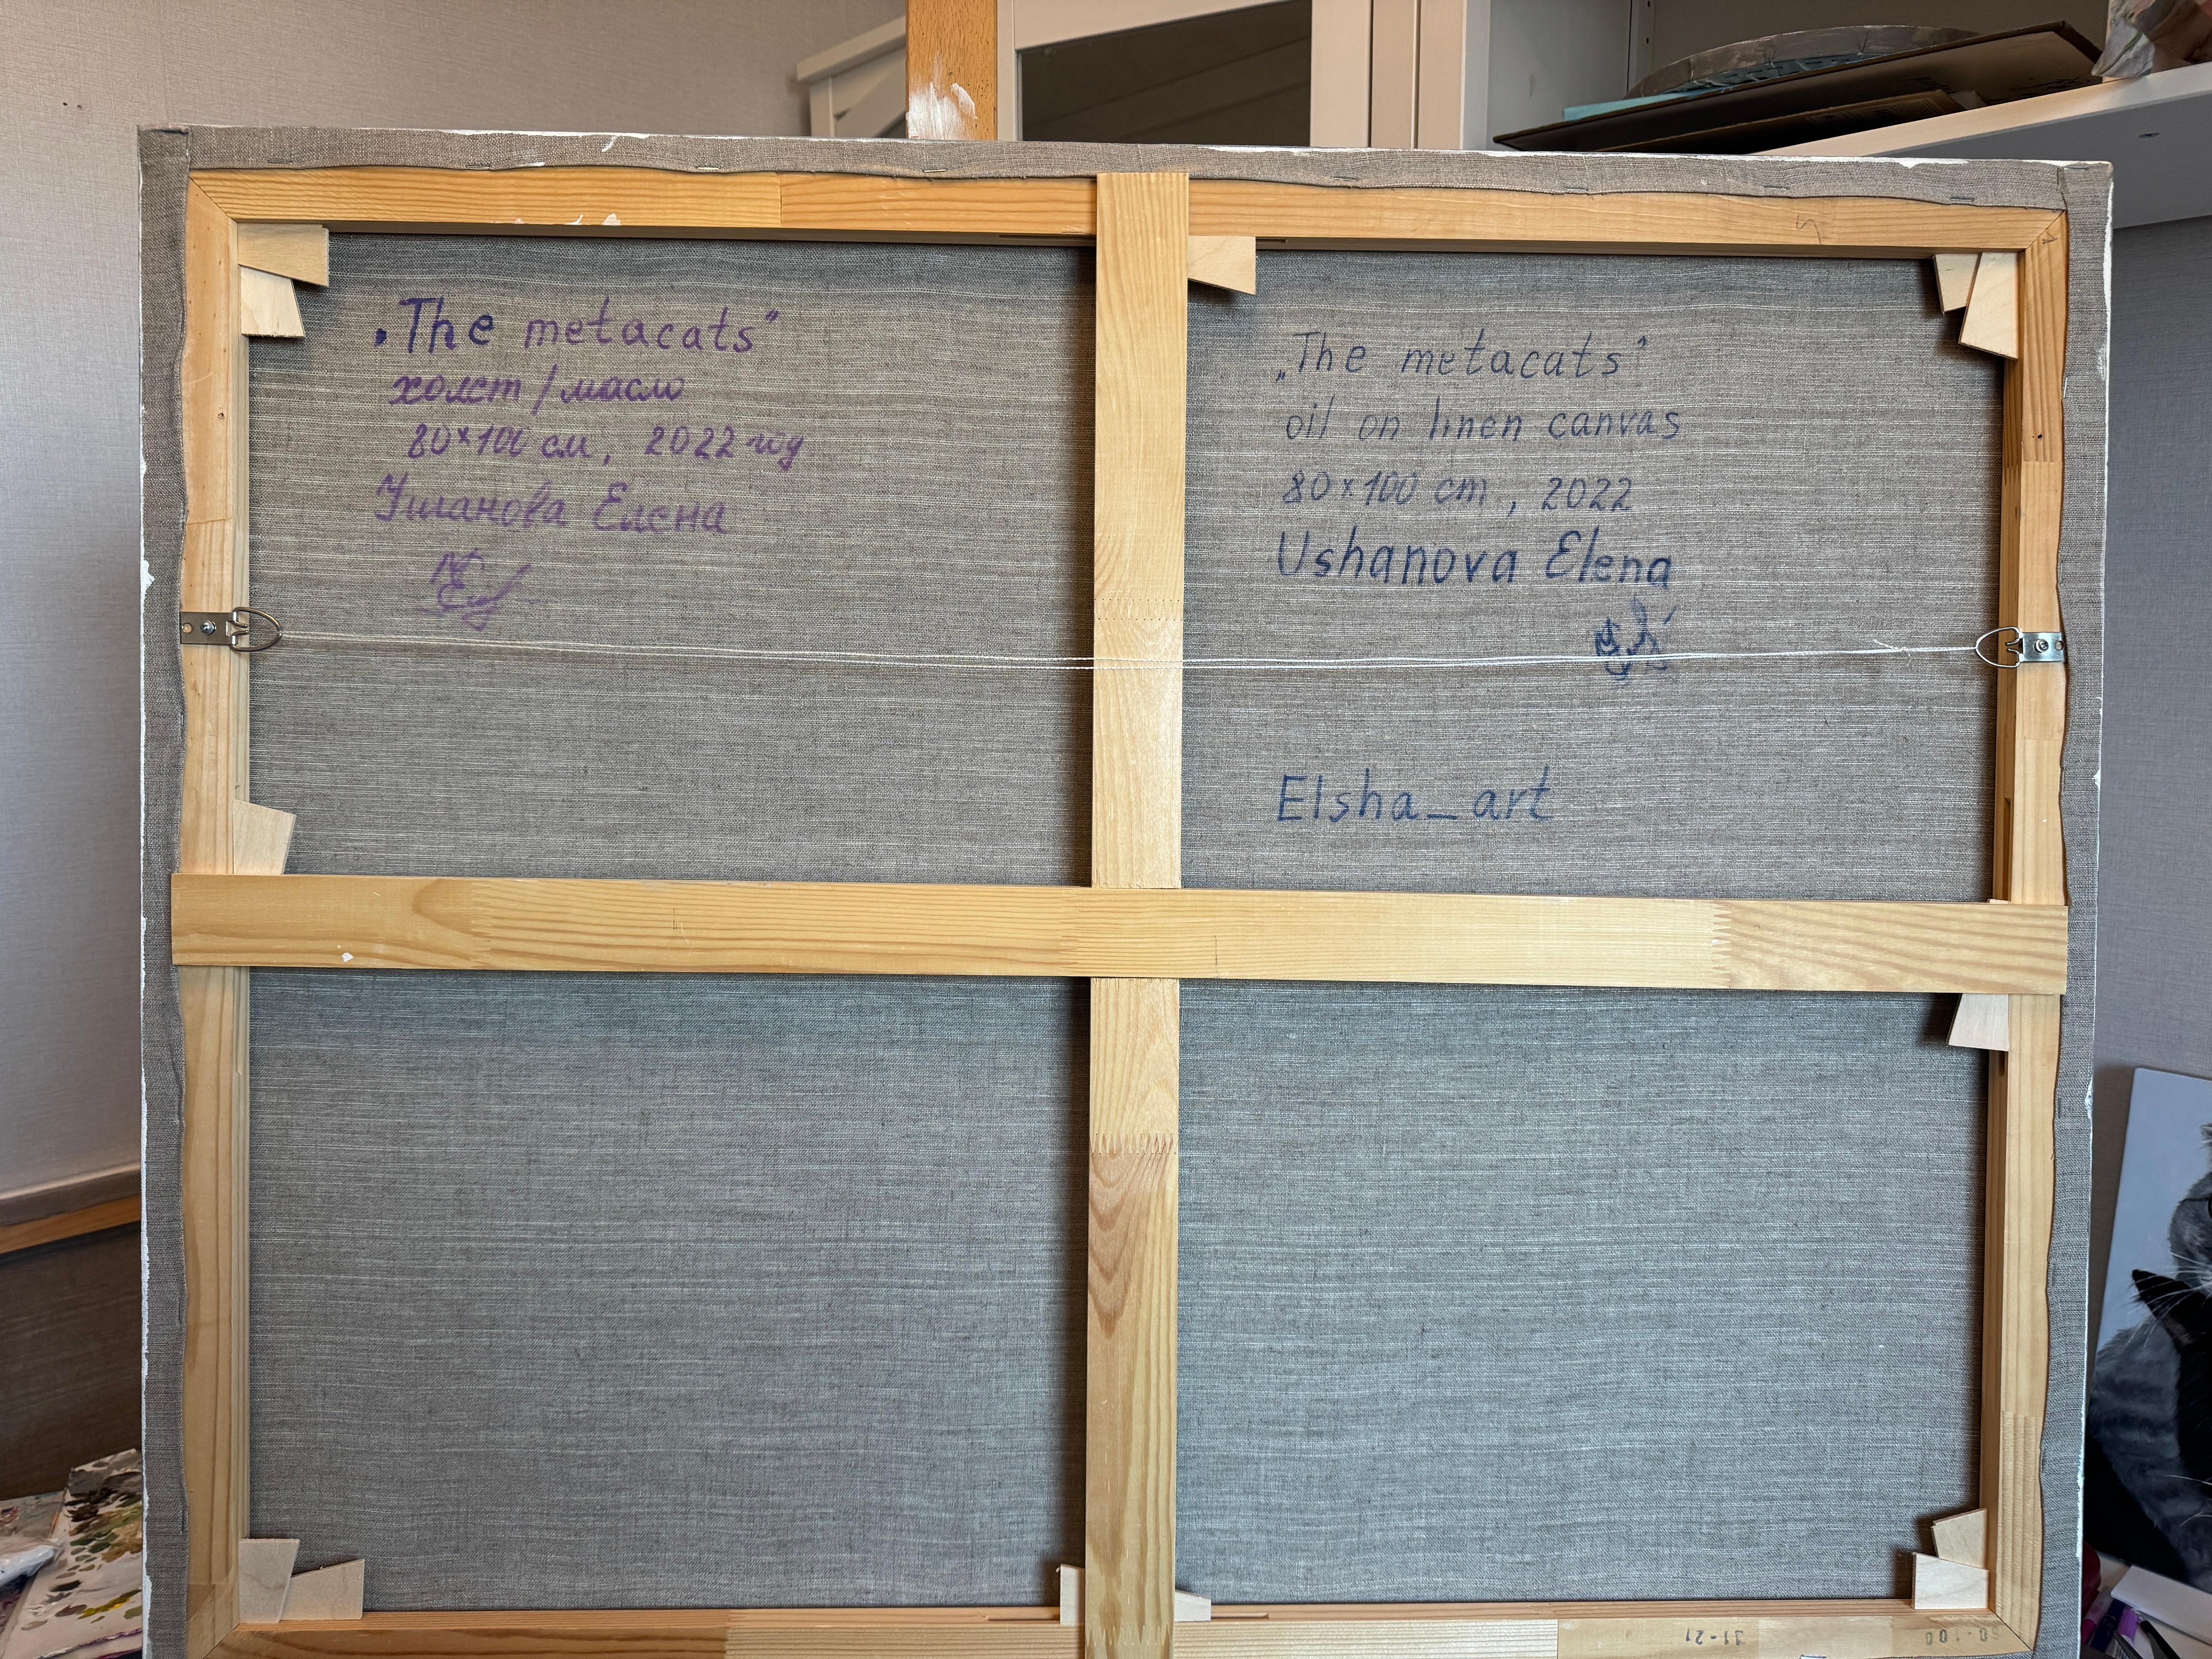 „The metacats”
холст/масло
80×100 см, 2022 год
Ушанова Елена
„The metacats”
oil on linen canvas
80×100 cm, 2022
Ushanova Elena
Elsha_art